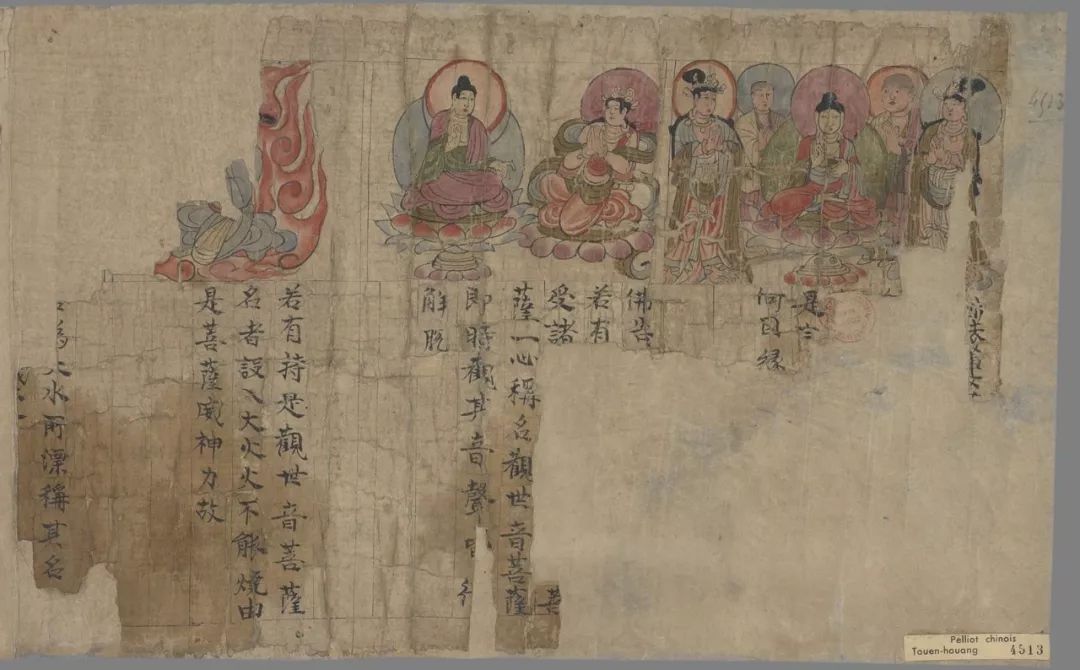 4513
是
何因緣
佛告
若有
受諸 菩
薩一心稱名觀世音菩薩
即時觀其音聲
解脫
若有持是觀世音菩薩
名者設入大火火不能燒由
是菩薩威神力故
大水所漂稱其名
Pelliot chinois
Touen-houang 4513